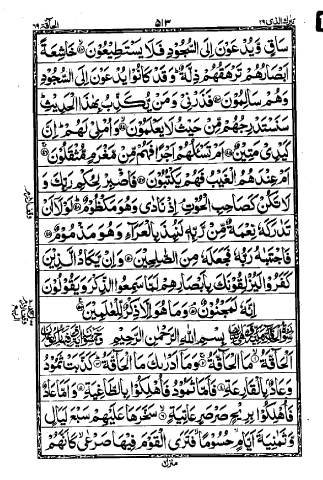 تبرك الذي ٢٩
٥١٣
الحاقة ٦٩
سَاقٍ وَّيُدْعَوْنَ اِلَى السُّجُوْدِ فَلَا يَسْتَطِيْعُوْنَ ﴿٤٢﴾ خَاشِعَةً
اَبْصَارُهُمْ تَرْهَقُهُمْ ذِلَّةٌ وَقَدْ كَانُوْا يُدْعَوْنَ اِلَى السُّجُوْدِ
وَهُمْ سَالِمُوْنَ ﴿٤٣﴾ فَذَرْنِيْ وَمَنْ يُّكَذِّبُ بِهٰذَا الْحَدِيْثِ
سَنَسْتَدْرِجُهُمْ مِّنْ حَيْثُ لَا يَعْلَمُوْنَ ﴿٤٤﴾ وَاُمْلِيْ لَهُمْ اِنَّ
كَيْدِيْ مَتِيْنٌ ﴿٤٥﴾ اَمْ تَسْـَٔلُهُمْ اَجْرًا فَهُمْ مِّنْ مَّغْرَمٍ مُّثْقَلُوْنَ ﴿٤٦﴾
اَمْ عِنْدَهُمُ الْغَيْبُ فَهُمْ يَكْتُبُوْنَ ﴿٤٧﴾ فَاصْبِرْ لِحُكْمِ رَبِّكَ وَ
لَا تَكُنْ كَصَاحِبِ الْحُوْتِ اِذْ نَادٰى وَهُوَ مَكْظُوْمٌ ﴿٤٨﴾ لَوْلَا اَنْ
تَدَارَكَهٗ نِعْمَةٌ مِّنْ رَّبِّهٖ لَنُبِذَ بِالْعَرَآءِ وَهُوَ مَذْمُوْمٌ ﴿٤٩﴾
فَاجْتَبٰهُ رَبُّهٗ فَجَعَلَهٗ مِنَ الصّٰلِحِيْنَ ﴿٥٠﴾ وَاِنْ يَّكَادُ الَّذِيْنَ
كَفَرُوْا لَيُزْلِقُوْنَكَ بِاَبْصَارِهِمْ لَمَّا سَمِعُوا الذِّكْرَ وَيَقُوْلُوْنَ
اِنَّهٗ لَمَجْنُوْنٌ ﴿٥١﴾ وَمَا هُوَ اِلَّا ذِكْرٌ لِّلْعٰلَمِيْنَ ﴿٥٢﴾
بِسْمِ اللّٰهِ الرَّحْمٰنِ الرَّحِيْمِ
اَلْحَآقَّةُ ﴿١﴾ مَا الْحَآقَّةُ ﴿٢﴾ وَمَآ اَدْرٰىكَ مَا الْحَآقَّةُ ﴿٣﴾ كَذَّبَتْ ثَمُوْدُ
وَعَادٌۢ بِالْقَارِعَةِ ﴿٤﴾ فَاَمَّا ثَمُوْدُ فَاُهْلِكُوْا بِالطَّاغِيَةِ ﴿٥﴾ وَاَمَّا عَادٌ
فَاُهْلِكُوْا بِرِيْحٍ صَرْصَرٍ عَاتِيَةٍ ﴿٦﴾ سَخَّرَهَا عَلَيْهِمْ سَبْعَ لَيَالٍ
وَّثَمٰنِيَةَ اَيَّامٍ حُسُوْمًا فَتَرَى الْقَوْمَ فِيْهَا صَرْعٰى كَاَنَّهُمْ
منزل